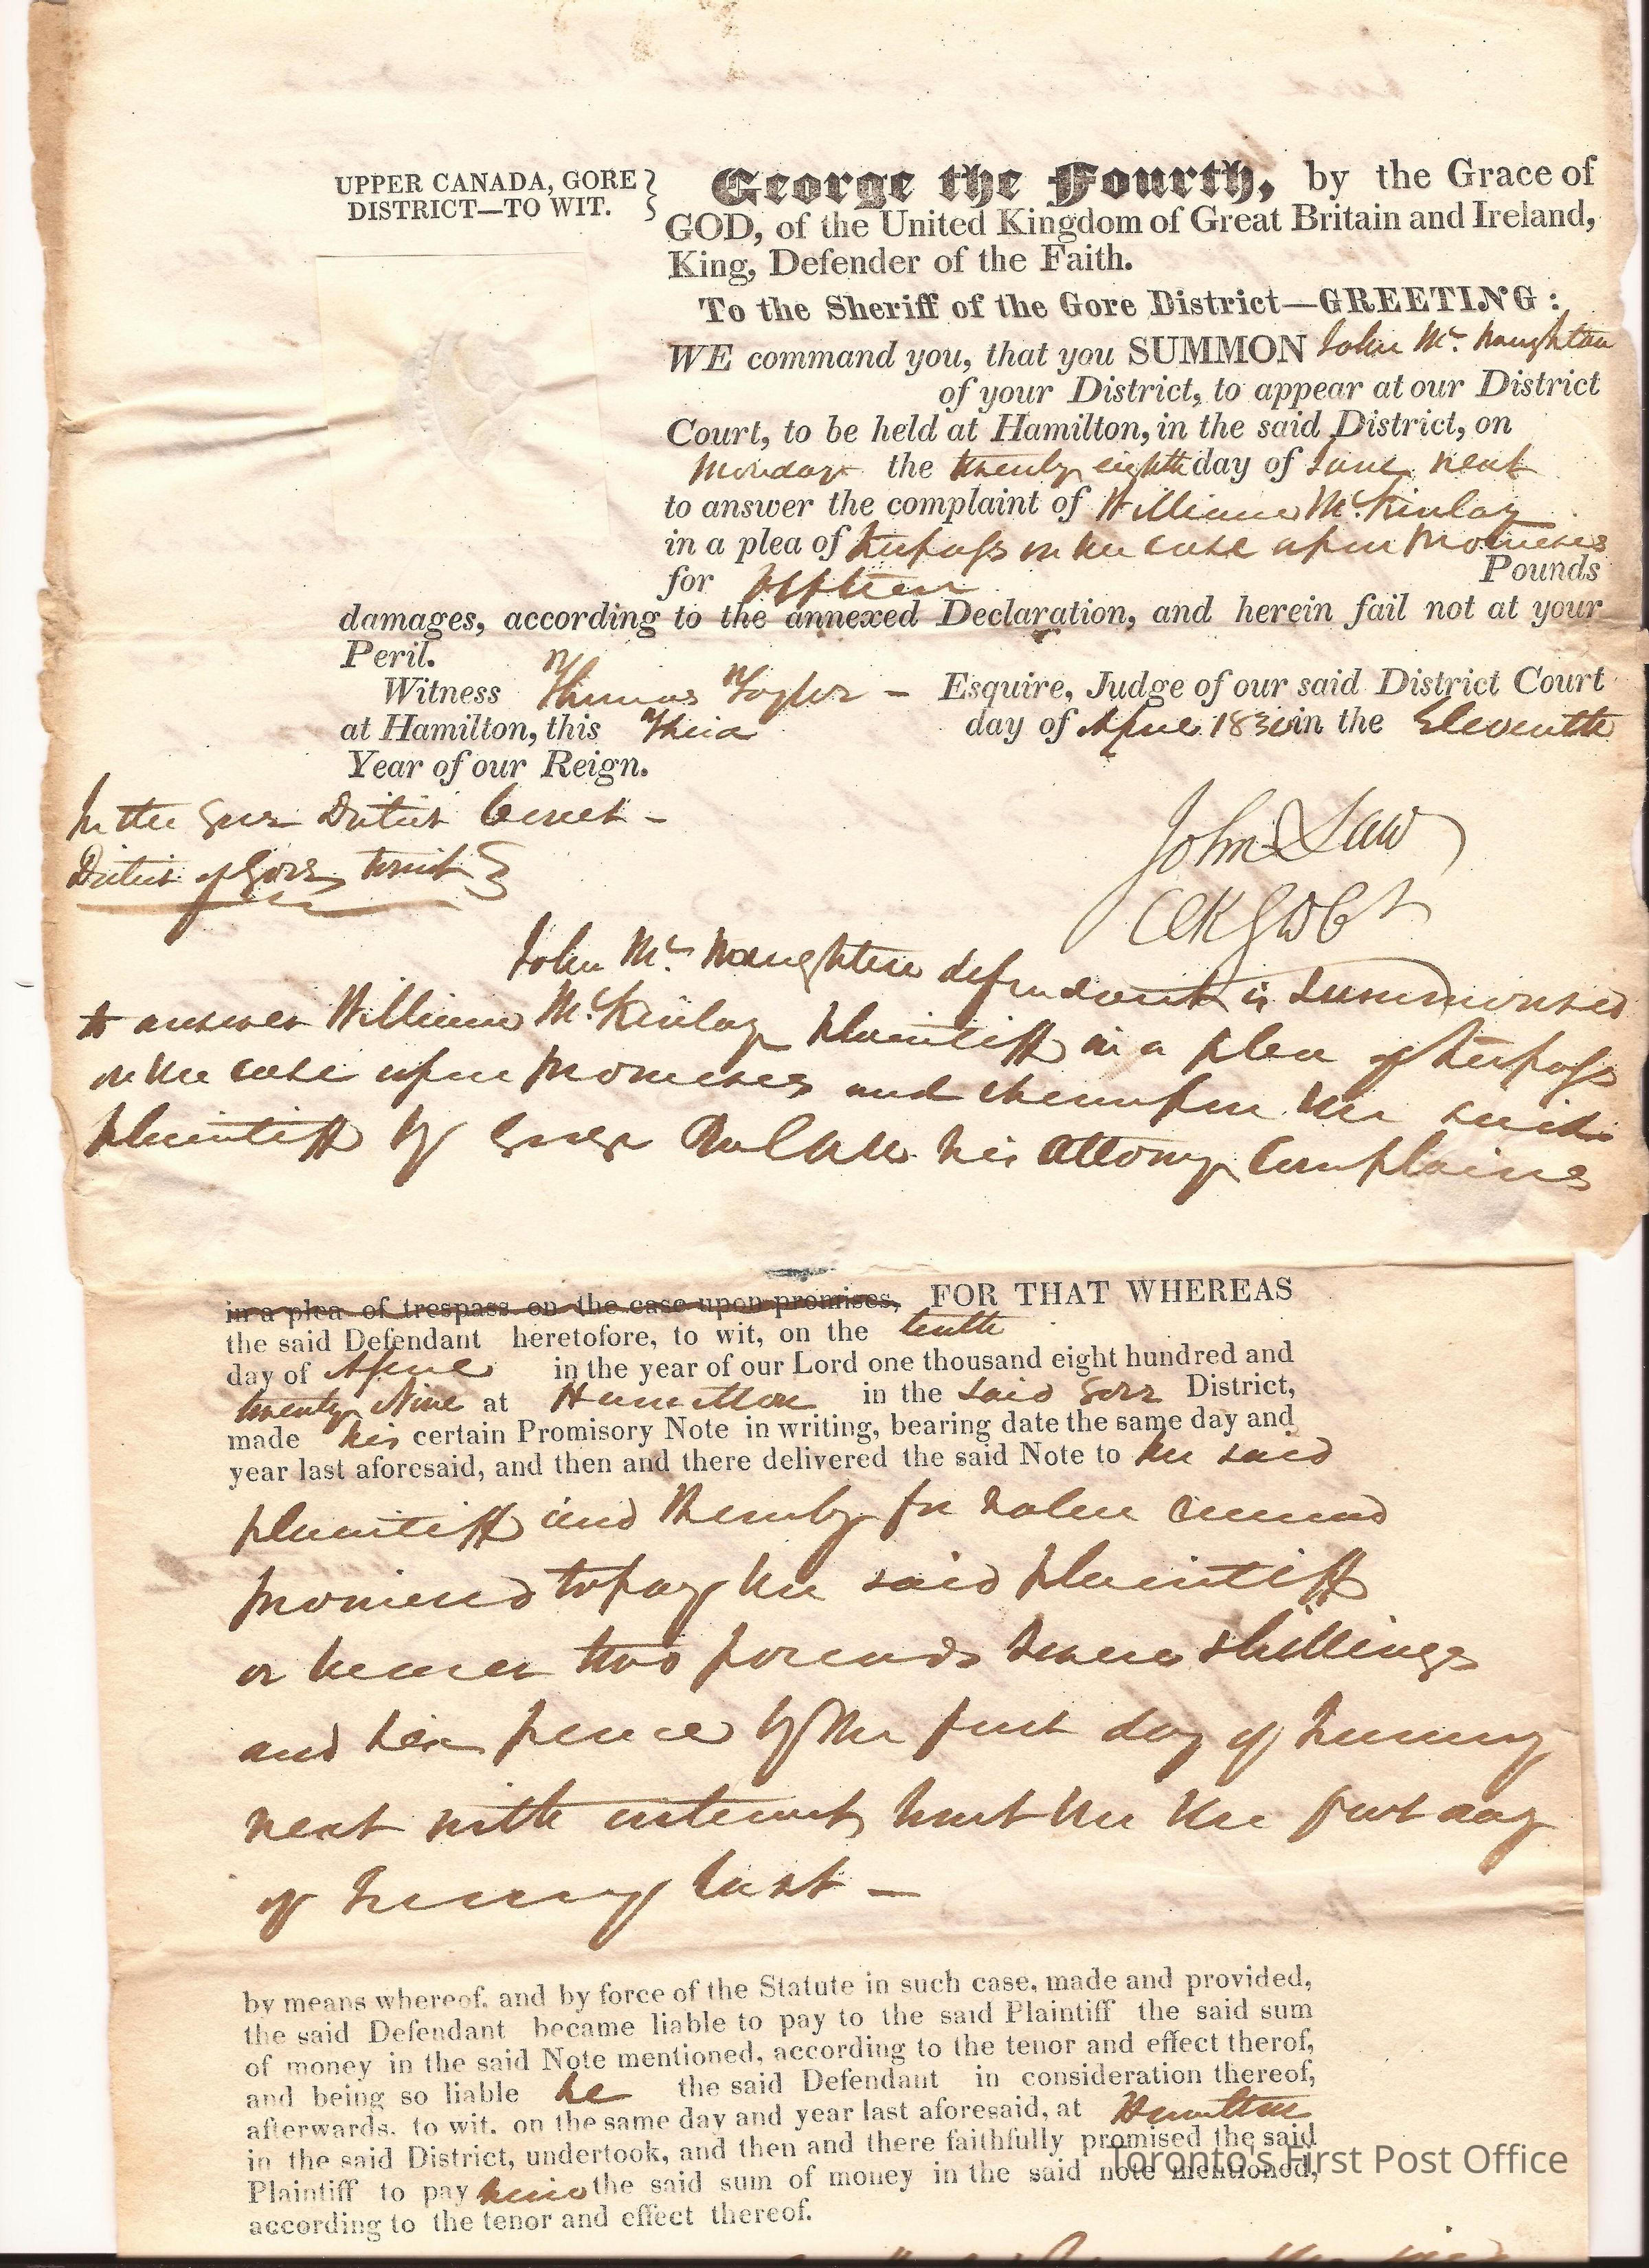 UPPER CANADA, GORE
DISTRICT—TO WIT.
George the Fourth, by the Grace of
GOD, of the United Kingdom of Great Britain and Ireland,
King, Defender of the Faith.
To the Sheriff of the Gore District—GREETING:
WE command you, that you SUMMON John Mc. Naughton
of your District, to appear at our District
Court, to be held at Hamilton, in the said District, on
Monday the twenty eighth day of June next
to answer the complaint of William McKinlay
in a plea of trespass on the case upon promises
for fifteen Pounds
damages, according to the annexed Declaration, and herein fail not at your
Peril.
Witness Thomas Taylor — Esquire, Judge of our said District Court
at Hamilton, this Third day of April 1830 in the Eleventh
Year of our Reign.
In the Gore District Court —
District of Gore towit
John Law
Clk G D Ct
John Mc. Naughton defendant is summonsed
to answer William McKinlay plaintiff in a plea of trespass
on the case upon promises and thereupon the said
plaintiff by George his attorney complains
in a plea of trespass on the case upon promises, FOR THAT WHEREAS
the said Defendant heretofore, to wit, on the tenth
day of April in the year of our Lord one thousand eight hundred and
twenty Nine at Hamilton in the said Gore District,
made his certain Promisory Note in writing, bearing date the same day and
year last aforesaid, and then and there delivered the said Note to the said
plaintiff and thereby for value received
promised to pay the said plaintiff
or bearer two pounds seven shillings
and six pence by the first day of January
next with interest the first day
of January last —
by means whereof, and by force of the Statute in such case, made and provided,
the said Defendant became liable to pay to the said Plaintiff the said sum
of money in the said Note mentioned, according to the tenor and effect therof,
and being so liable he the said Defendant in consideration thereof,
afterwards, to wit, on the same day and year last aforesaid, at Hamilton
in the said District, undertook, and then and there faithfully promised the said
Plaintiff to pay him the said sum of money in the said note mentioned,
according to the tenor and effect thereof.
Toronto's First Post Office